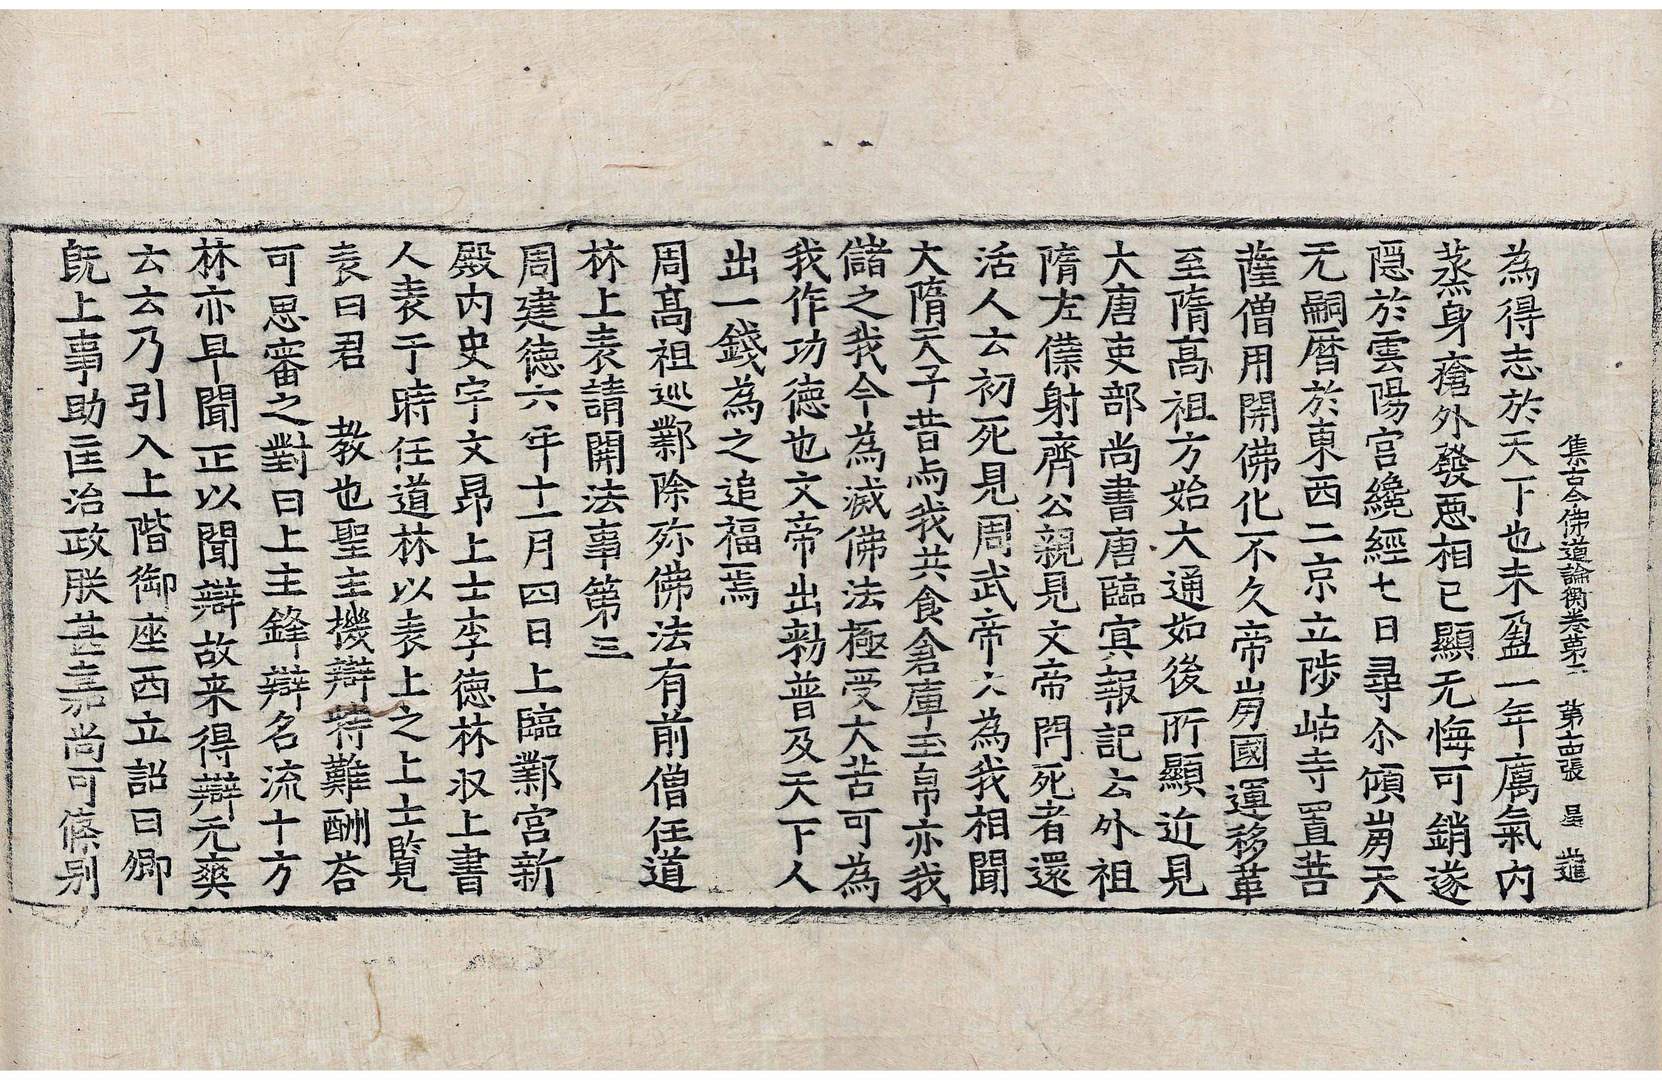 集古今佛道論衡卷第二 第十四張
為得志於天下也未盈一年厲氣內
蒸身瘡外發惡相已顯无悔可銷遂
隱於雲陽宮纔經七日尋尒傾崩天
元嗣曆於東西二京立陟岵寺置菩
薩僧用開佛化不久帝崩國運移革
至隋高祖方始大通如後所顯近見
大唐吏部尚書唐臨冥報記云外祖
隋左僕射齊公親見文帝問死者還
活人云初死見周武帝云為我相聞
大隋天子昔与我共食倉庫玉帛亦我
儲之我今為滅佛法極受大苦可為
我作功德也文帝出勑普及天下人
出一錢為之追福焉
周高祖巡鄴除殄佛法有前僧任道
林上表請開法事第三
周建德六年十一月四日上臨鄴宮新
殿內史宇文昂上士李德林収上書
人表于時任道林以表上之上士覽
表曰君 教也聖主機辯特難酬荅
可思審之對曰上主鋒辯名流十方
林亦早聞正以聞辯故来得辯无爽
云云乃引入上階御座西立詔曰卿
旣上事助匡治政朕甚嘉尚可條別